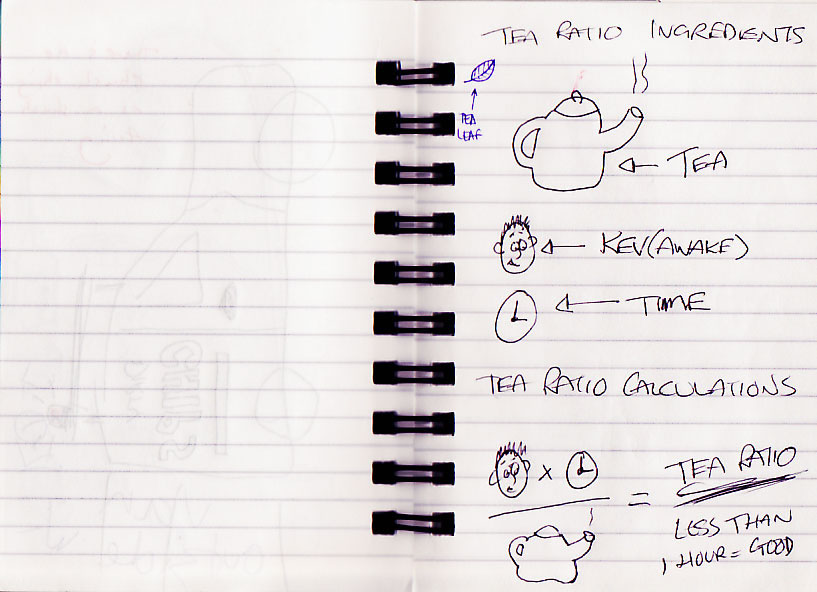 TEA RATIO INGREDIENTS
TEA
LEAF
TEA
KEV (AWAKE)
TIME
TEA RATIO CALCULATIONS
x
= TEA RATIO
LESS THAN
1 HOUR = GOOD